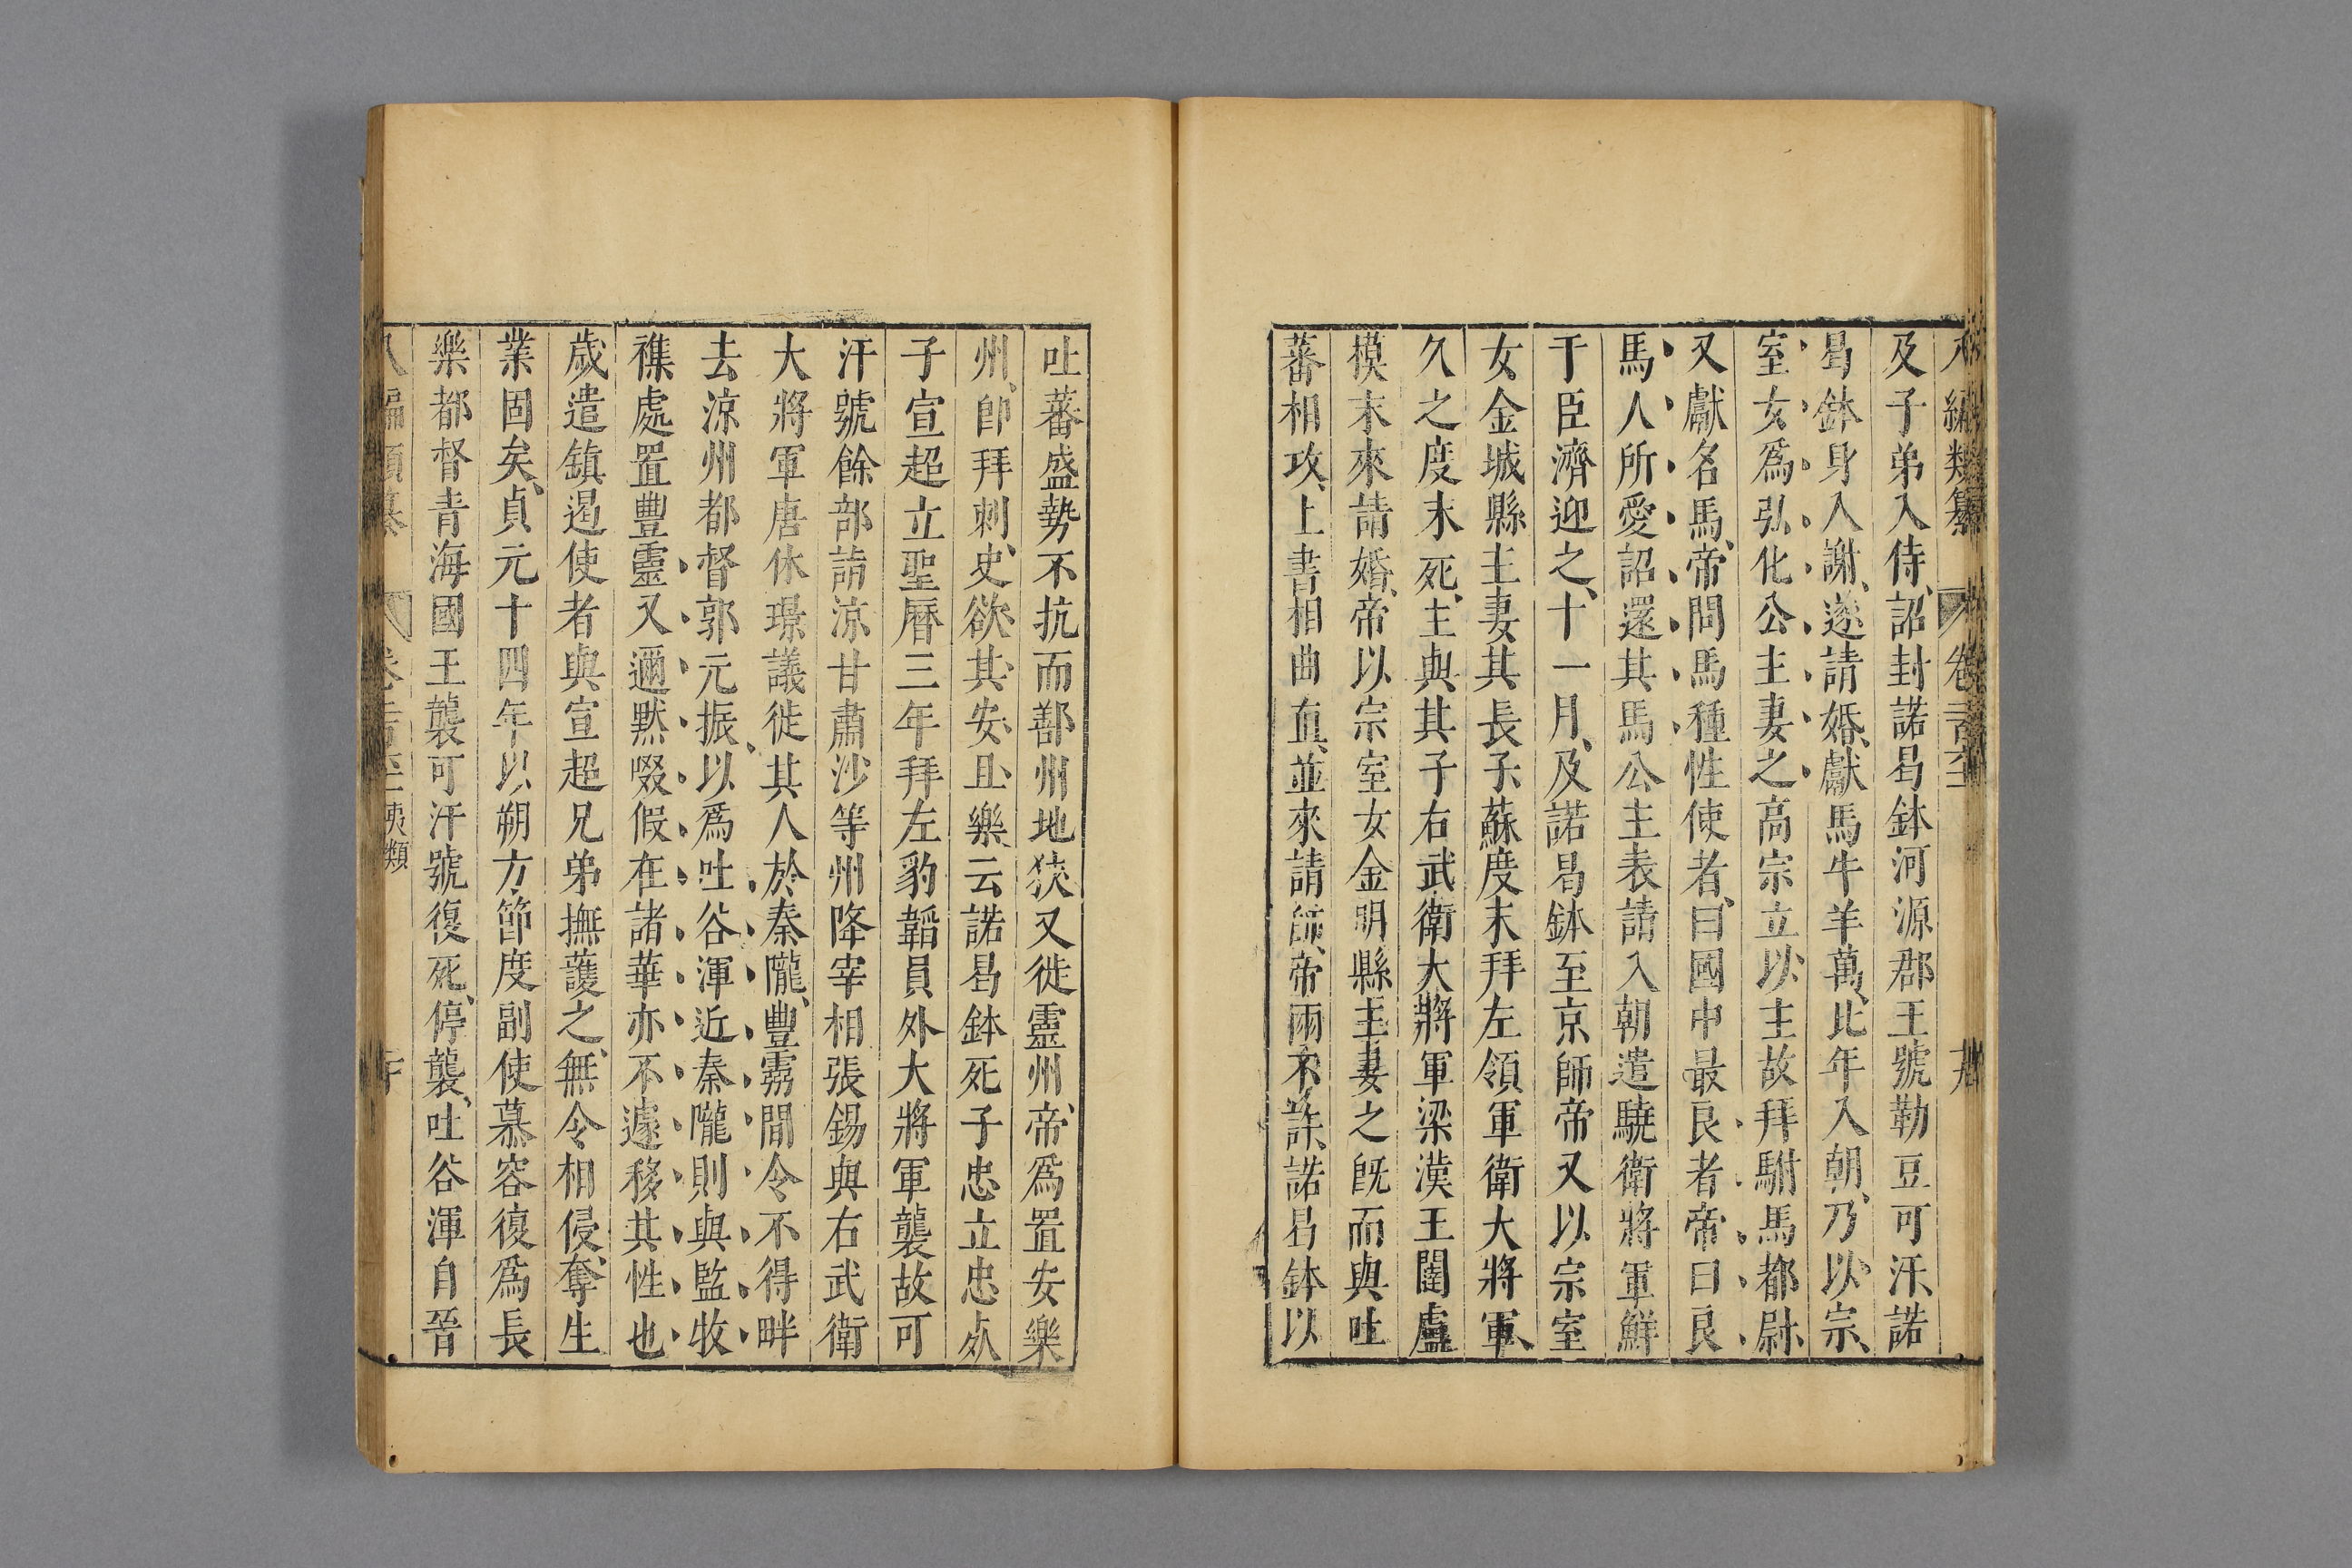 八編類纂 卷 十九
及子弟入侍、詔封諾曷鉢河源郡王號勒豆可汗、諾
曷鉢身入謝、遂請婚、獻馬牛羊萬、比年入朝、乃以宗
室女爲弘化公主妻之高宗立以主故拜駙馬都尉
又獻名馬、帝問馬種性使者、曰國中最良者帝曰良
馬人所愛詔還其馬公主表請入朝遣驍衛將軍鮮
于臣濟迎之、十一月、及諾曷鉢至京師帝又以宗室
女金城縣主妻其長子蘇度末拜左領軍衛大將軍
久之度末死、主與其子右武衛大將軍梁漢王闥盧
模末來請婚、帝以宗室女金明縣主妻之旣而與吐
蕃相攻、上書相曲直、並來請師、帝兩不許、諾曷鉢以
吐蕃盛勢不抗而鄯州地狹又徙靈州、帝爲置安樂
州、卽拜刺史欲其安且樂云諾曷鉢死子忠立忠死
子宣超立聖曆三年拜左豹韜員外大將軍襲故可
汗號餘部請涼甘肅沙等州降宰相張錫與右武衛
大將軍唐休璟議徙其人於秦隴、豐靈間令不得畔
去涼州都督郭元振、以爲吐谷渾近秦隴則與監牧
襍處置豐靈又邇默啜假在諸華亦不遽移其性也
歲遣鎮遏使者與宣超兄弟撫護之、無令相侵奪生
業固矣、貞元十四年以朔方節度副使慕容復爲長
樂都督青海國王襲可汗號復死、停襲、吐谷渾自晉
編類纂 夷類